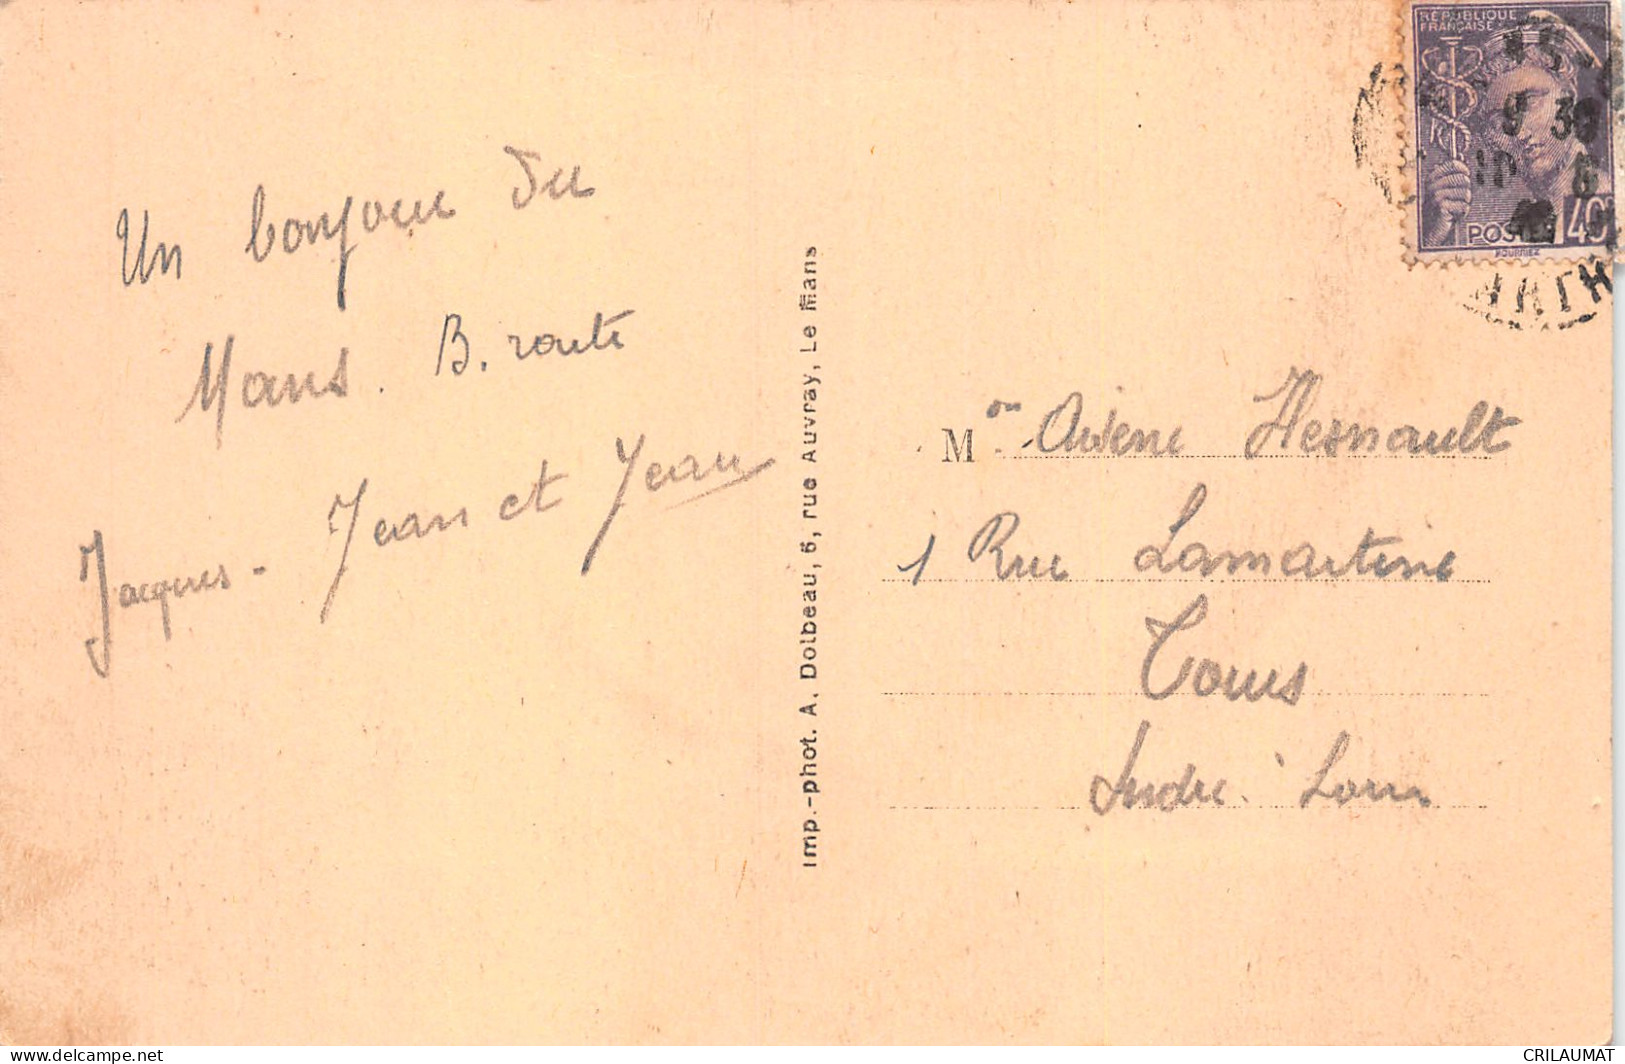 Un bonjour du
Mans. B. route
Jacques - Jean et Jean
Imp.-phot. A. Dolbeau, 5, rue Auvray, Le Mans
RÉPUBLIQUE
FRANÇAISE
9 30
10 6
POSTES 40
M on Hesnault
1 Rue Lamartine
Tours
Indre. Loire
delcampe.net
CRILAUMAT